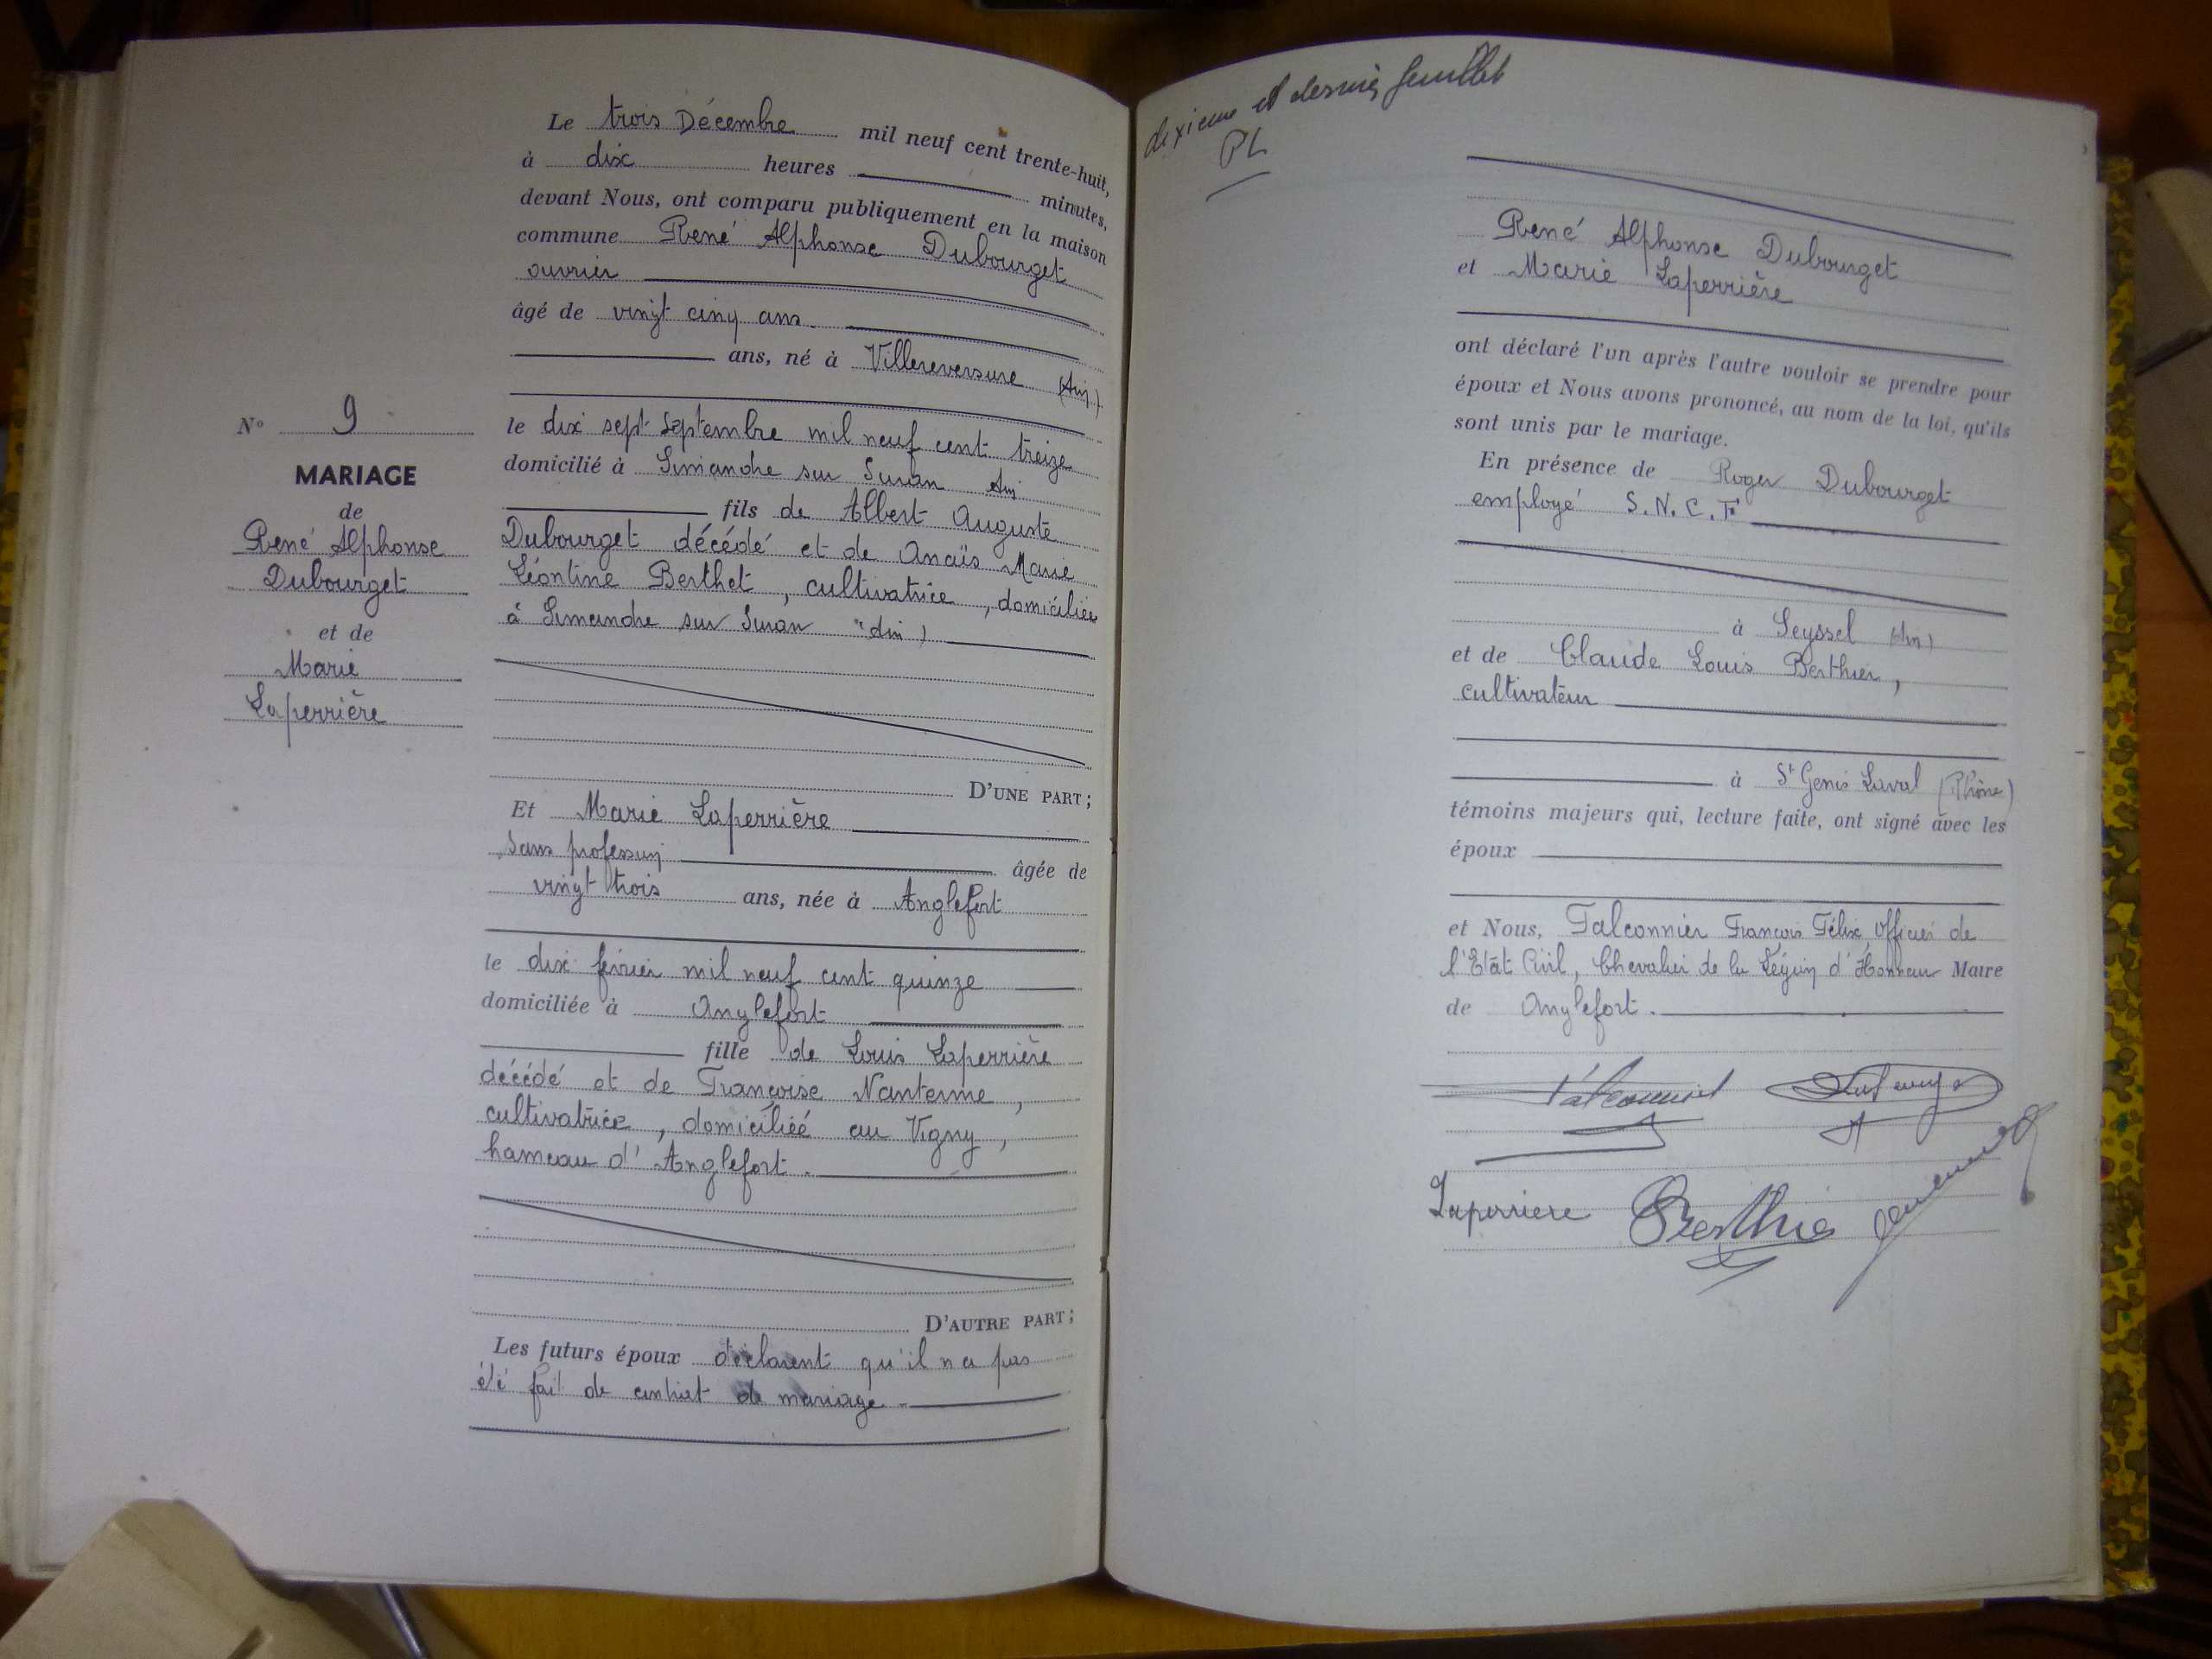 Le trois Décembre mil neuf cent trente-huit,
à dix heures minutes,
devant Nous, ont comparu publiquement en la maison
commune René Alphonse Dubourget
ouvrier
âgé de vingt cinq ans.
ans, né à Villereversure (Ain)
le dix sept Septembre mil neuf cent treize
domicilié à Simandre sur Suran Ain
fils de Albert Auguste
Dubourget décédé et de Anaïs Marie
Léontine Berthet, cultivatrice, domiciliée
à Simandre sur Suran (Ain)
D'UNE PART;
Et Marie Laperrière
Sans profession âgée de
vingt trois ans, née à Anglefort
le dix février mil neuf cent quinze
domiciliée à Anglefort
fille de Louis Laperrière
décédé et de Françoise Nanterme,
cultivatrice, domiciliée au Vigny,
hameau d'Anglefort.
D'AUTRE PART;
Les futurs époux déclarent qu'il n a pas
été fait de contrat de mariage.
No 9
MARIAGE
de
René Alphonse
Dubourget
et de
Marie
Laperrière
dixieme et dernier feuillet
PL
René Alphonse Dubourget
et Marie Laperrière
ont déclaré l'un après l'autre vouloir se prendre pour
époux et Nous avons prononcé, au nom de la loi, qu'ils
sont unis par le mariage.
En présence de Roger Dubourget
employé S.N.C.F
à Seyssel (Ain)
et de Claude Louis Berthier,
cultivateur
à St Genis Laval (Rhône)
témoins majeurs qui, lecture faite, ont signé avec les
époux
et Nous, Falconnier François Félix, Officier de
l'Etat Civil, Chevalier de la Légion d'Honneur Maire
de Anglefort.
Falconnier
Laperriere Berthier